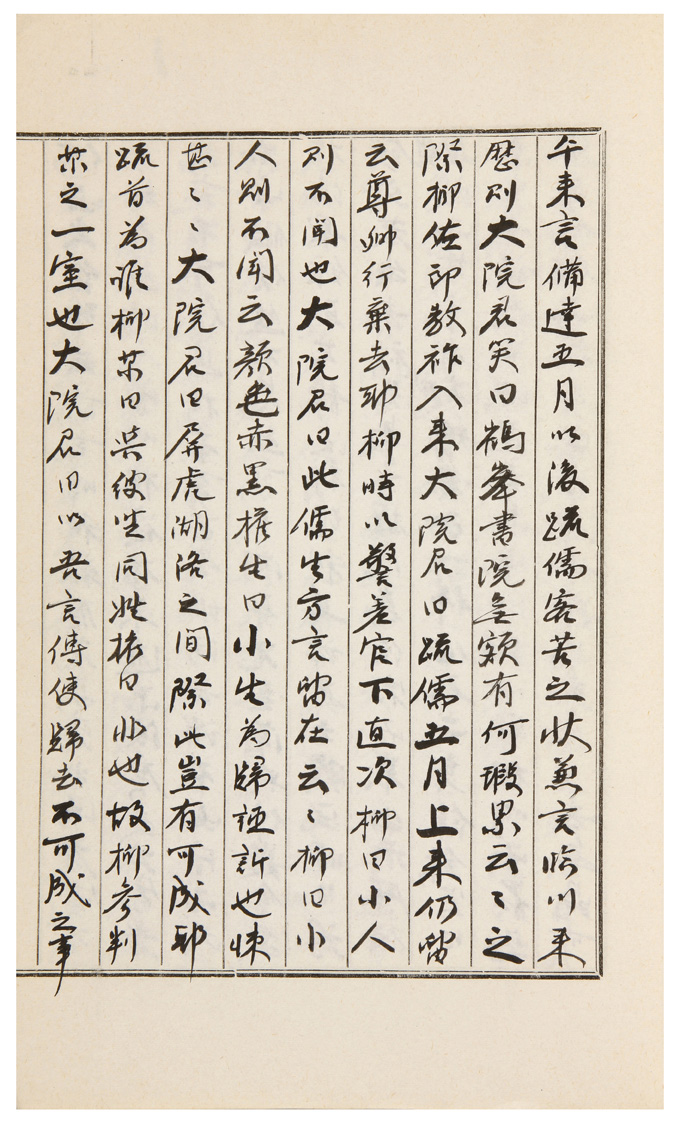 午来言備達五月以後疏儒客苦之狀兼言臨川来
歷則大院君笑曰鶴峯書院無額有何瑕累云〻之
際柳佐郎敎祚入来大院君曰疏儒五月上来仍留
云尊卿行棄去耶柳時以 差官下直次柳曰小人
則不聞也大院君曰此儒生方言留在云〻柳曰小
人則不聞云顔色赤黑權生曰小生為歸 訴也悚
甚〻〻大院君曰屏虎湖洛之間際此豈有可成耶
疏首為誰柳 曰 彼 同姓 曰非也故柳參判
之一室也大院君曰以吾言傳使歸去不可成之事